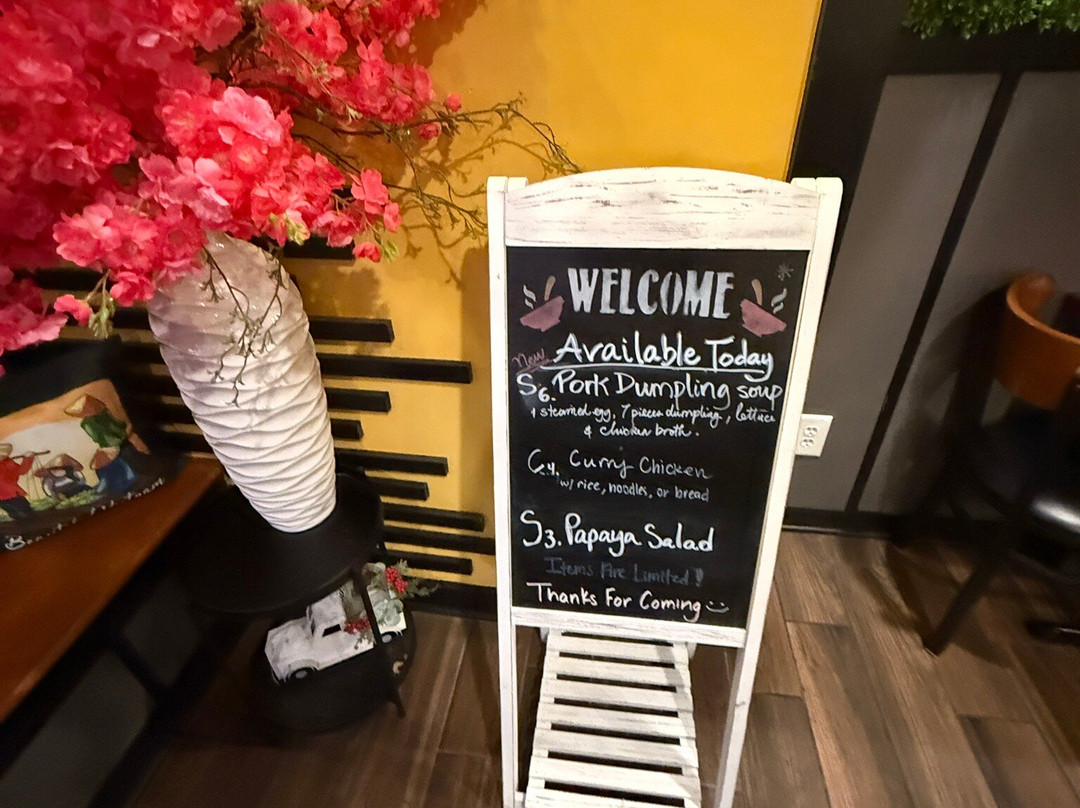 WELCOME
New Available Today
S6. Pork Dumpling soup
1 steamed egg, 7 pieces dumpling, lettuce
& chicken broth.
C4. Curry Chicken
w/ rice, noodles, or bread
S3. Papaya Salad
Items Are Limited!
Thanks For Coming